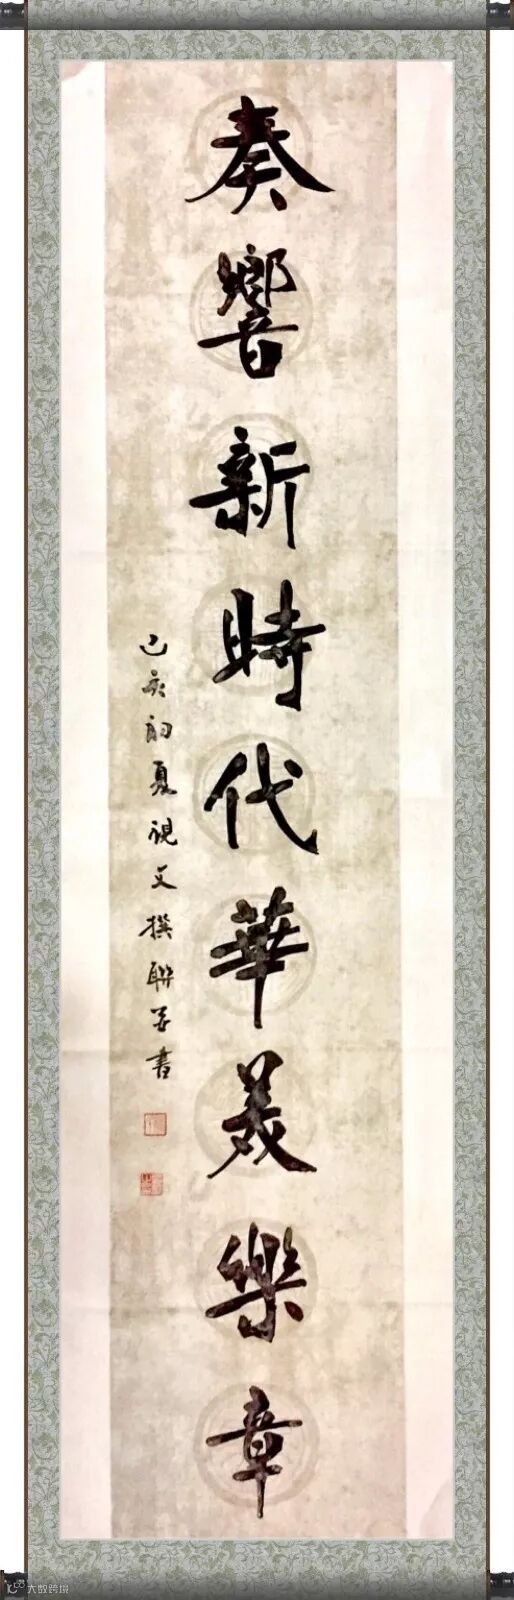 奏響新時代華美樂章
己亥初夏視文撰聯并書
大数跨境